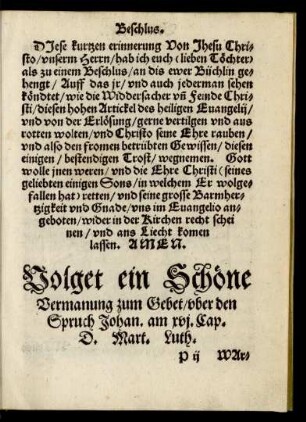 Beschlus.
DIese kurtzen erinnerung Von Jhesu Chri-
sto/vnserm Herrn/hab ich euch (lieben Töchter)
als zu einem Beschlus/an dis ewer Büchlin ge-
hengt/Auff das jr/vnd auch jederman sehen
köndtet/wie die Widdersacher vñ Feinde Christi
/diesen hohen Artickel des heiligen Euangelij/
vnd von der Erlösung/gerne vertilgen vnd aus
rotten wolten/vnd Christo seine Ehre rauben/
vnd also den fromen betrübten Gewissen/diesen
einigen/bestendigen Trost/wegnemen. Gott
wolle jnen weren/vnd die Ehre Christi (seines
geliebten einigen Sons/in welchem Er wolge-
fallen hat) retten/vnd seine grosse Barmher-
tzigkeit vnd Gnade/vns im Euangelio an-
geboten/wider in der Kirchen recht schei
nen/vnd ans Liecht komen
lassen. AMEN.
Volget ein Schöne
Vermanung zum Gebet/vber den
Spruch Johan. am xvj. Cap.
D. Mart. Luth.
P ij WAr-